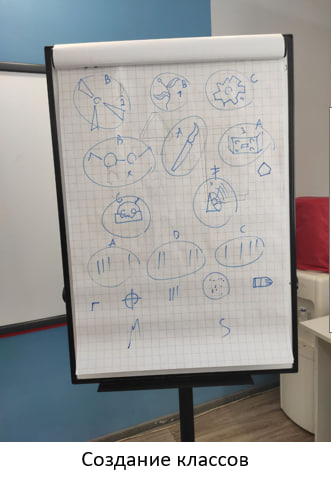 B B C
2 1
B A 1 A
x
C
A D C
Г
M S
Создание классов